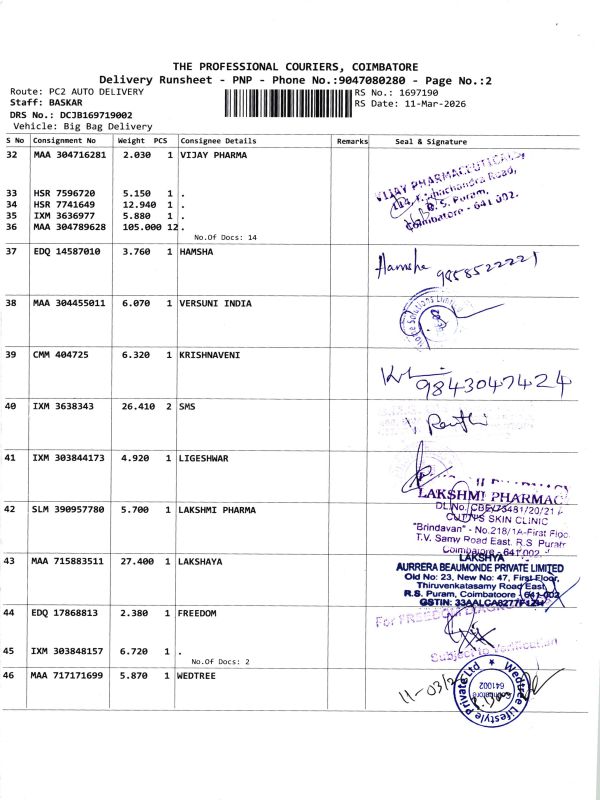 THE PROFESSIONAL COURIERS, COIMBATORE
Delivery Runsheet - PNP - Phone No.:9047080280 - Page No.:2
Route: PC2 AUTO DELIVERY
RS No.: 1697190
Staff: BASKAR
RS Date: 11-Mar-2026
DRS No.: DCJB169719002
Vehicle: Big Bag Delivery
S No Consignment No Weight PCS Consignee Details Remarks Seal & Signature
32 MAA 304716281 2.030 1 VIJAY PHARMA
VIJAY PHARMACEUTICALS,
Road,
R. S. Puram,
Coimbatore - 641 002.
33 HSR 7596720 5.150 1 .
34 HSR 7741649 12.940 1 .
35 IXM 3636977 5.880 1 .
36 MAA 304789628 105.000 12 .
No.Of Docs: 14
37 EDQ 14587010 3.760 1 HAMSHA
Hamsha 9858522221
38 MAA 304455011 6.070 1 VERSUNI INDIA
39 CMM 404725 6.320 1 KRISHNAVENI
9843047424
40 IXM 3638343 26.410 2 SMS
41 IXM 303844173 4.920 1 LIGESHWAR
42 SLM 390957780 5.700 1 LAKSHMI PHARMA
LAKSHMI PHARMAC
DL.No. CBE/73481/20/21
CUTYS SKIN CLINIC
"Brindavan" - No.218/1A-First Floo
T.V. Samy Road East, R.S. Puram
Coimbatore - 641 002.
43 MAA 715883511 27.400 1 LAKSHAYA
LAKSHYA
AURRERA BEAUMONDE PRIVATE LIMITED
Old No: 23, New No: 47, First Floor,
Thiruvenkatasamy Road East,
R.S. Puram, Coimbatore - 641 002
GSTIN:
44 EDQ 17868813 2.380 1 FREEDOM
For FREEDOM
Subject to Verification
45 IXM 303848157 6.720 1 .
No.Of Docs: 2
46 MAA 717171699 5.870 1 WEDTREE
11-03/2
Wedtree Lifestyle Private Ltd
Coimbatore
641002